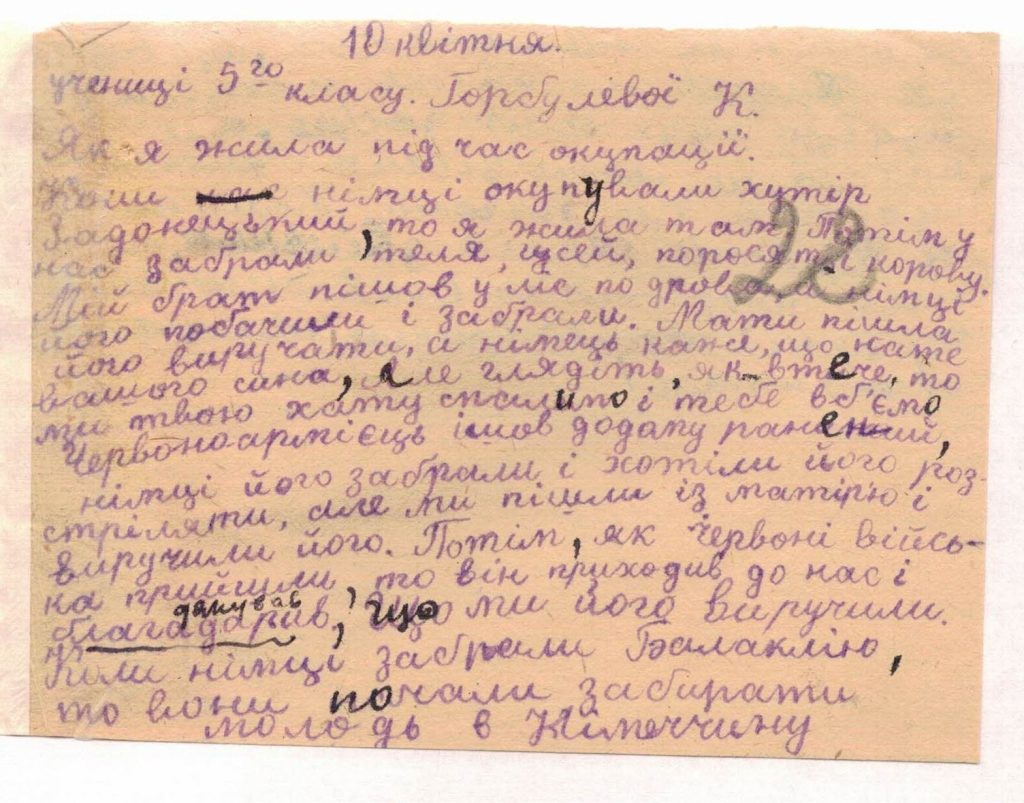 10 квітня.
учениці 5го класу. Горбулевої К.
Як я жила під час окупації.
Коли нас німці окупували хутір
Задонецький, то я жила там. Потім у
нас забрали, теля, гусей, порося та і корову.
Мій брат пішов у ліс по дрова, а німці
його побачили і забрали. Мати пішла
його виручати, а німець каже, що нате
вашого сина, але глядіть, як втече, то
ми твою хату спалимо і тебе вб'ємо
Червоноармієць ішов додому ранений,
німці його забрали і хотіли його роз-
стріляти, але ми пішли із матірю і
виручили його. Потім, як Червоні війсь-
ка прийшли, то він приходив до нас і
дякував
благадарив, що ми його виручили.
Коли німці забрали Балаклію,
то вони почали забирати
молодь в Німеччину
22